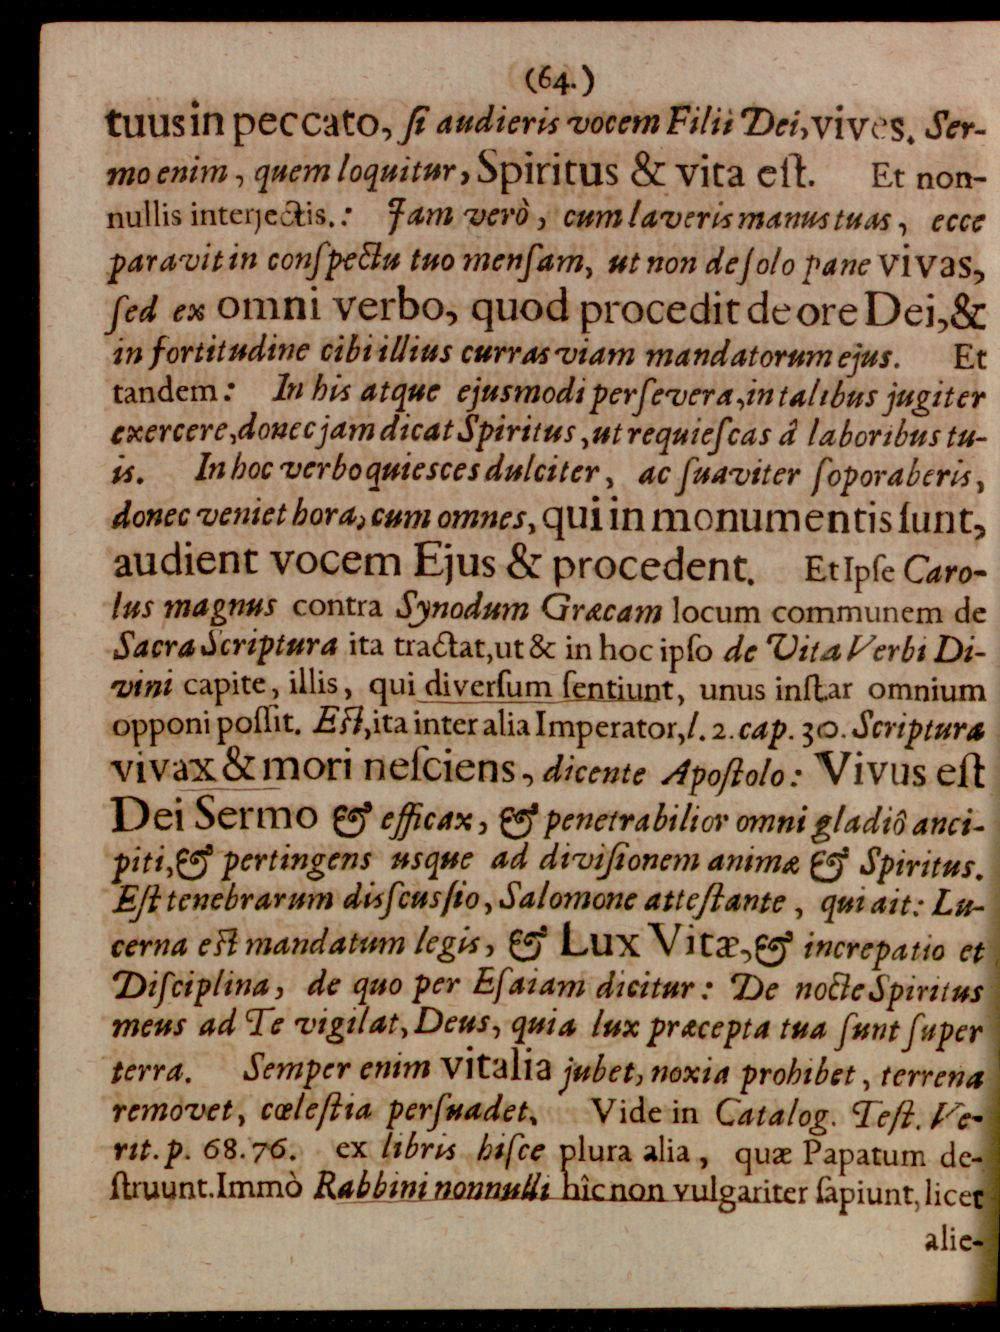 (64.)
tuus in peccato, ſi audieris vocem Filii Dei, vives. Ser-
mo enim, quem loquitur, Spiritus & vita eſt. Et non-
nullis interjectis.: Jam verò, cum laveris manus tuas, ecce
paravit in conſpectu tuo menſam, ut non de ſolo pane vivas,
ſed ex omni verbo, quod procedit de ore Dei, &
in fortitudine cibi illius curras viam mandatorum ejus. Et
tandem: In his atque ejusmodi perſevera, in talibus jugiter
exercere, donec jam dicat Spiritus, ut requieſcas â laboribus tu-
is. In hoc verbo quiesces dulciter, ac ſuaviter ſoporaberis,
donec veniet hora, cum omnes, qui in monumentis ſunt,
audient vocem Ejus & procedent. Et Ipſe Caro-
lus magnus contra Synodum Græcam locum communem de
Sacra Scriptura ita tractat, ut & in hoc ipſo de Vita Verbi Di-
vini capite, illis, qui diverſum ſentiunt, unus inſtar omnium
opponi poſſit. Eſt, ita inter alia Imperator, l. 2. cap. 30. Scriptura
vivax & mori neſciens, dicente Apoſtolo: Vivus eſt
Dei Sermo & efficax, & penetrabilior omni gladiô anci-
piti, & pertingens usque ad diviſionem animæ & Spiritus.
Eſt tenebrarum disſcusſio, Salomone atteſtante, qui ait: Lu-
cerna eſt mandatum legis, & Lux Vitæ, & increpatio et
Diſciplina, de quo per Eſaiam dicitur: De nocte Spiritus
meus ad Te vigilat, Deus, quia lux præcepta tua ſunt ſuper
terra. Semper enim vitalia jubet, noxia prohibet, terrena
removet, cœleſtia perſuadet. Vide in Catalog. Teſt. Ve-
rit. p. 68. 76. ex libris hiſce plura alia, quæ Papatum de-
ſtruunt. Immò Rabbini nonnulli hîc non vulgariter ſapiunt, licet
alie-